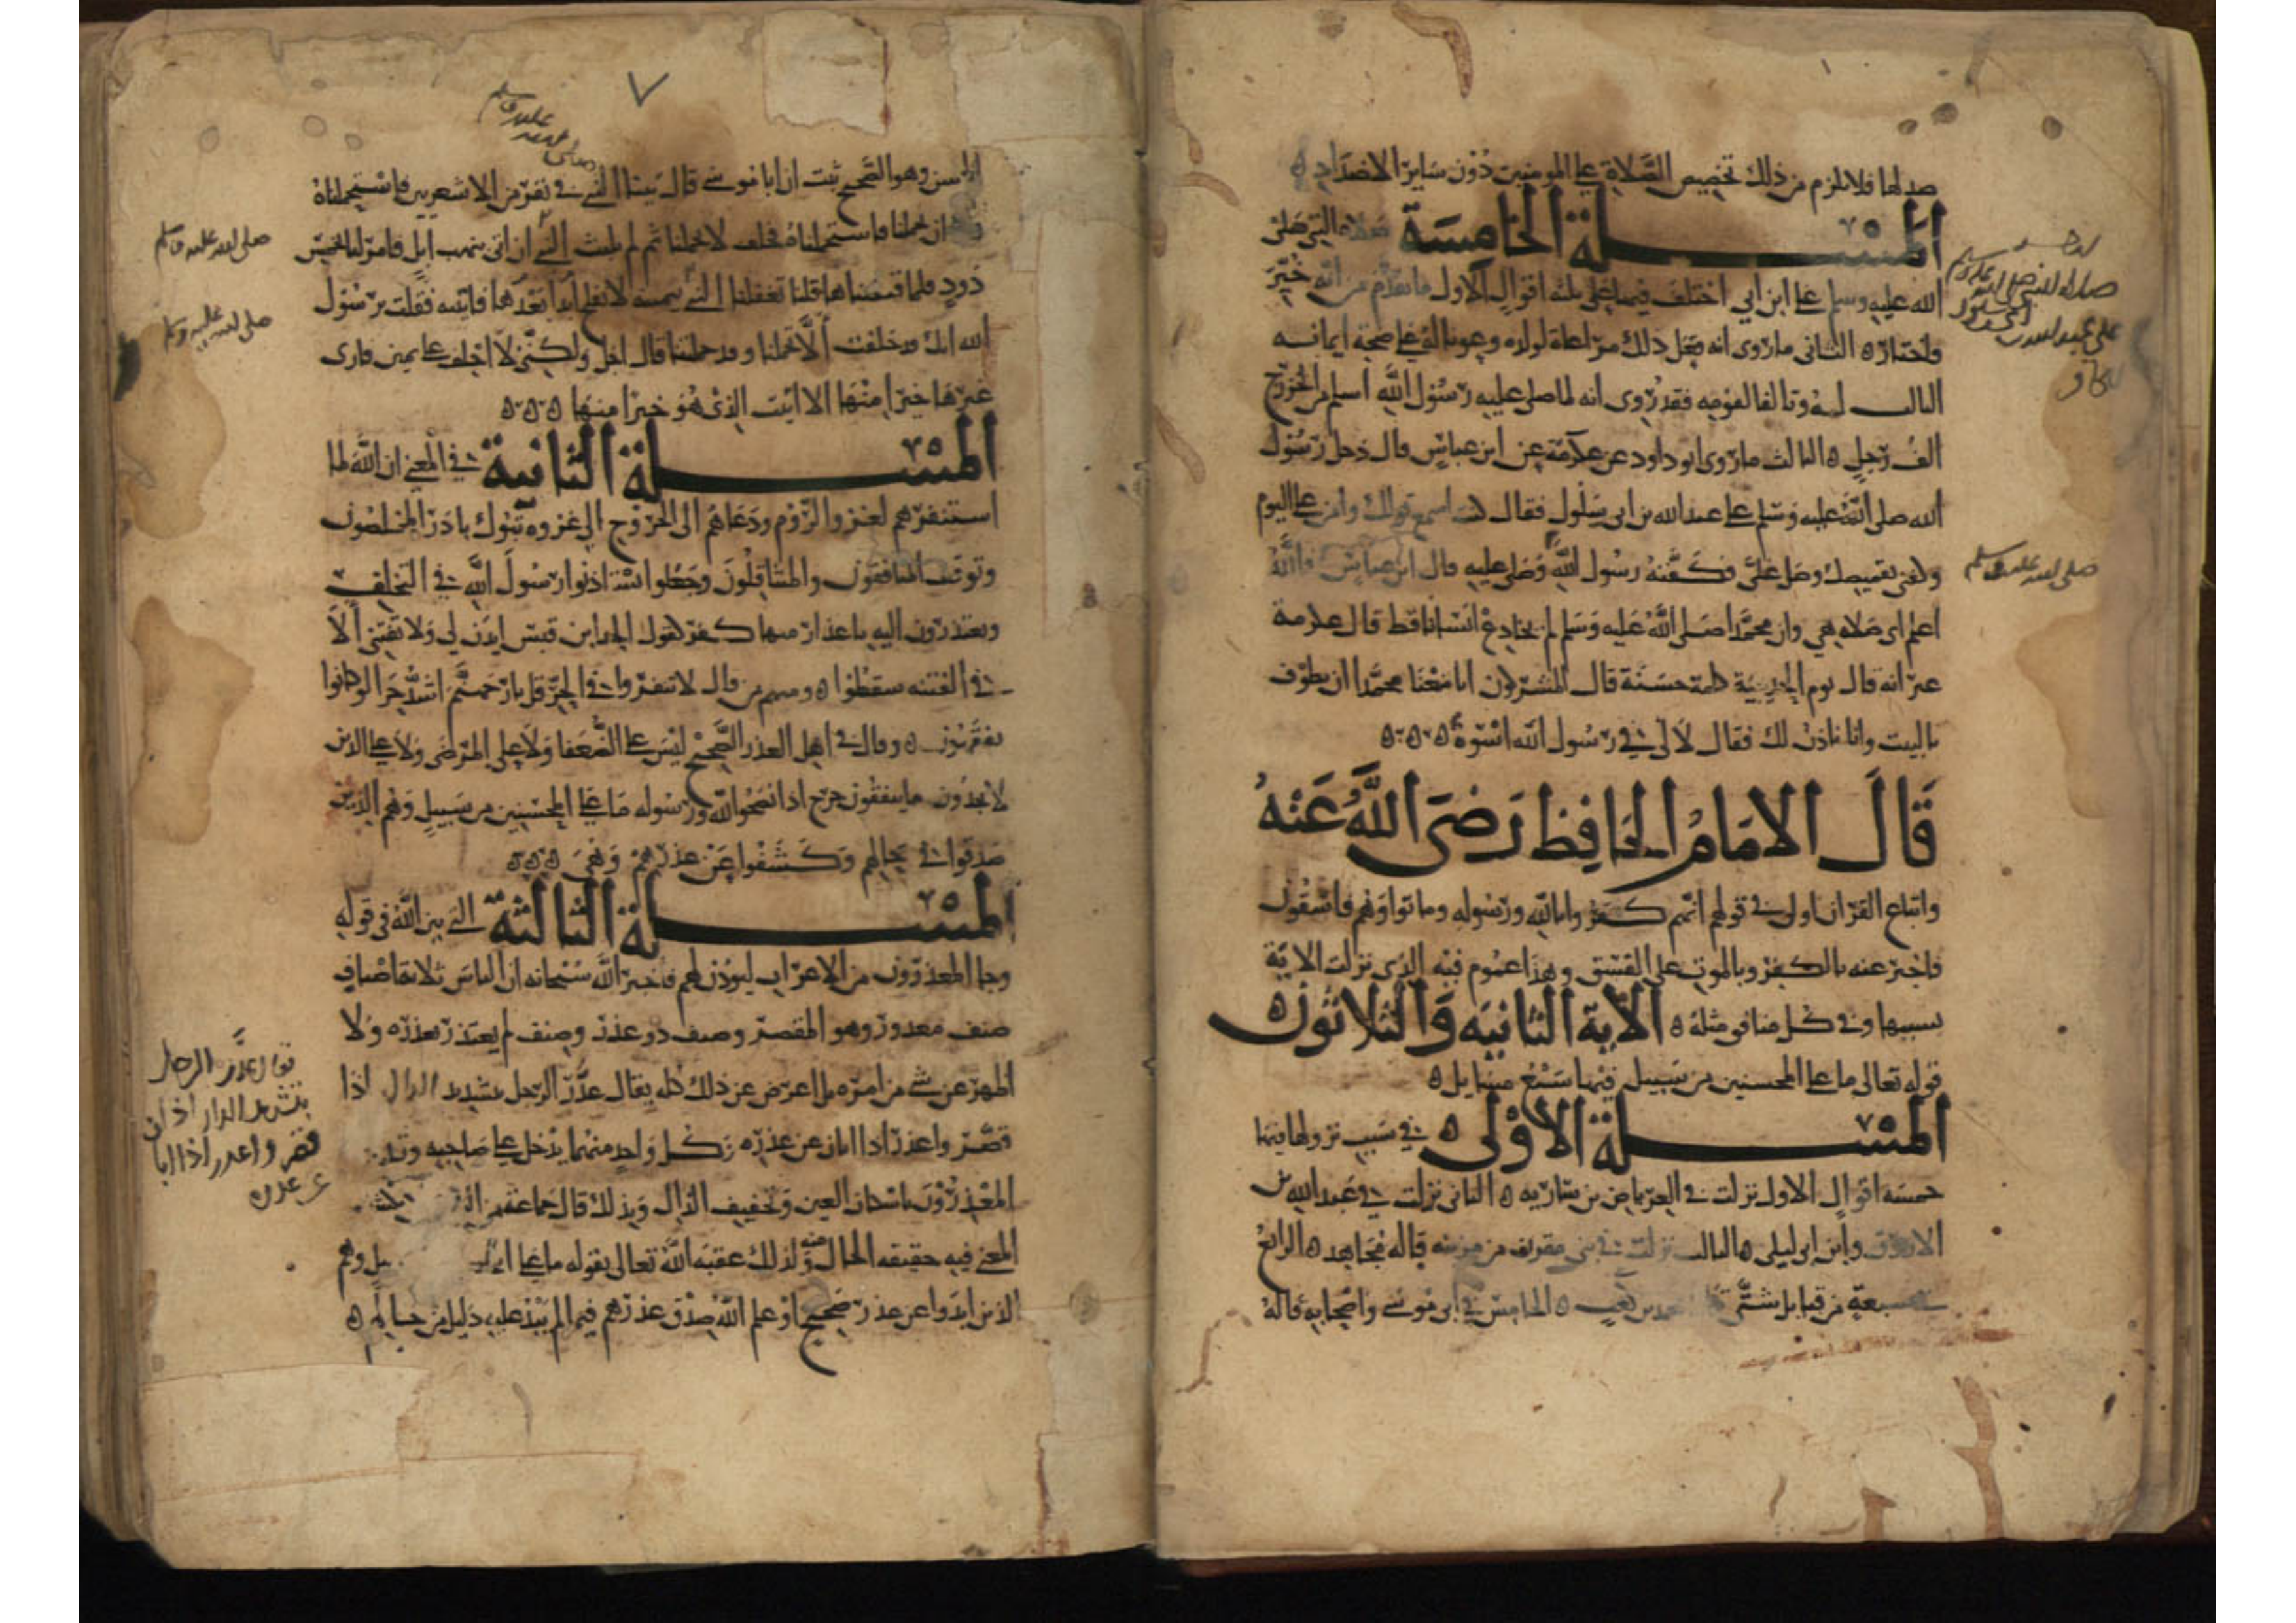 ضدها فلا يلزم من ذلك تخصيص الصلاة على المومنين دون ساير الاضداد ه
المسلة الخامسة صلاة النبي صلى
الله عليه وسلم على ابن ابي اختلف فيها على ثلثة اقوال الاول ما تقدم من انه خير
واختار ه الثاني ما روي انه فعل ذلك مراعاة لولده وعونا له على صحة ايمانه
وتالفا لقومه فقد روي انه لما صلى عليه رسول الله اسلم من الخزرج
الف رجل ه الثالث ما روى ابو داود عن عكرمة عن ابن عباس قال دخل رسول
الله صلى الله عليه وسلم على عبد الله بن ابي سلول فقال اسمع قولك وامنن علي اليوم
وكفني بقميصك وصل علي فكفنه رسول الله وصلى عليه قال ابن عباس فالله
اعلم اي صلاه هي وان محمدا صلى الله عليه وسلم لم يخادع انسانا قط قال عكرمة
غير انه قال يوم الحديبية كلمة حسنة قال المشركون انا منعنا محمدا ان يطوف
بالبيت وانا ناذن لك فقال لا لي في رسول الله اسوة ه ه ه
قال الامام الحافظ رضى الله عنه
واتباع القران اولى في قولهم انهم كفروا بالله ورسوله وماتوا وهم فاسقون
فاخبر عنه بالكفر وبالموت على الفسق وهذا عموم فيه الذي نزلت الاية
بسببها وفي كل منافق مثله ه الاية الثانيه والثلاثون
قوله تعالى ما على المحسنين من سبيل فيها سبع مسايل ه
المسلة الاولى ه في سبب نزولها فيها
خمسة اقوال الاول نزلت في العرباض بن ساريه ه الثاني نزلت في عبد الله بن
الازرق وابن ابي ليلى ه الثالث نزلت في بني مقرن من مزينه قاله مجاهد ه الرابع
سبعة من قبايل شتى بن كعب ه الخامس في ابي موسى واصحابه قاله
صلى الله عليه وسلم
الحسن وهو الصحيح ثبت ان ابا موسى قال اتينا النبي في نفر من الاشعريين فاستحملناه
ان حملنا فاستحملناه فحلف لا يحملنا ثم لم يلبث النبي ان اتى بنهب ابل فامر لنا بخمس
ذود فلما قبضناها قلنا تغفلنا النبي يمينه لا نفلح ابدا بعدها فاتيته فقلت يرسول
الله انك قد حلفت الا تحملنا وقد حملتنا قال اجل ولكني لا احلف على يمين فارى
غيرها خيرا منها الا اتيت الذي هو خير منها ه ه ه
المسلة الثانية في المعنى ان الله لما
استنفرهم لغزو الروم ودعاهم الى الخروج الى غزوه تبوك بادر المخلصون
وتوقف المنافقون والمتثاقلون وجعلوا يستاذنوا رسول الله في التخلف
ويعتذرون اليه باعذار منها كفر كقول الجد ابن قيس ايذن لي ولا تفتني الا
في الفتنه سقطوا ه ومنهم من قال لا تنفروا في الحر قل نار جهنم اشد حرا لو كانوا
يفقهون ه وقال في اهل العذر الصحيح ليس على الضعفا ولا على المرضى ولا على الذين
لا يجدون ما ينفقون حرج اذا نصحوا لله ورسوله ما على المحسنين من سبيل وهم الذين
صدقوا في حالهم وكشفوا عن عذرهم وهي ه ه ه
المسلة الثالثة التي بين الله في قوله
وجا المعذرون من الاعراب ليوذن لهم فاخبر الله سبحانه ان الناس ثلاثة اصناف
صنف معذور وهو المقصر وصنف ذو عذر وصنف لم يعتذر بعذره ولا
اظهر عن شي من امره بل اعرض عن ذلك كله يقال عذر الرجل بتشديد الذال اذا
قصر واعذر اذا ابان عن عذره وكل واحد منهما يدخل على صاحبه
المعذرون باسكان العين وتخفيف الذال وبذلك قال جماعة من
المعنى فيه حقيقه الحال منه ولذلك عقبه الله تعالى بقوله ما على وهم
الذين ابدوا عن عذر صحيح او علم الله صدق عذرهم فيما لم يبد عليه دليل من حالهم ه
صلى الله عليه وسلم
صلى الله عليه وسلم
صلى الله عليه وسلم
يقال عذر الرجل
بتشديد الذال اذا
قصر واعذر اذا ابا
ن عن عذره
٧